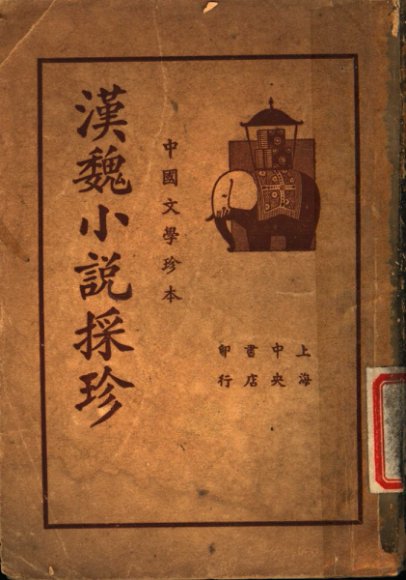 漢魏小説採珍
中國文學珍本
上海
中央
書店
印行